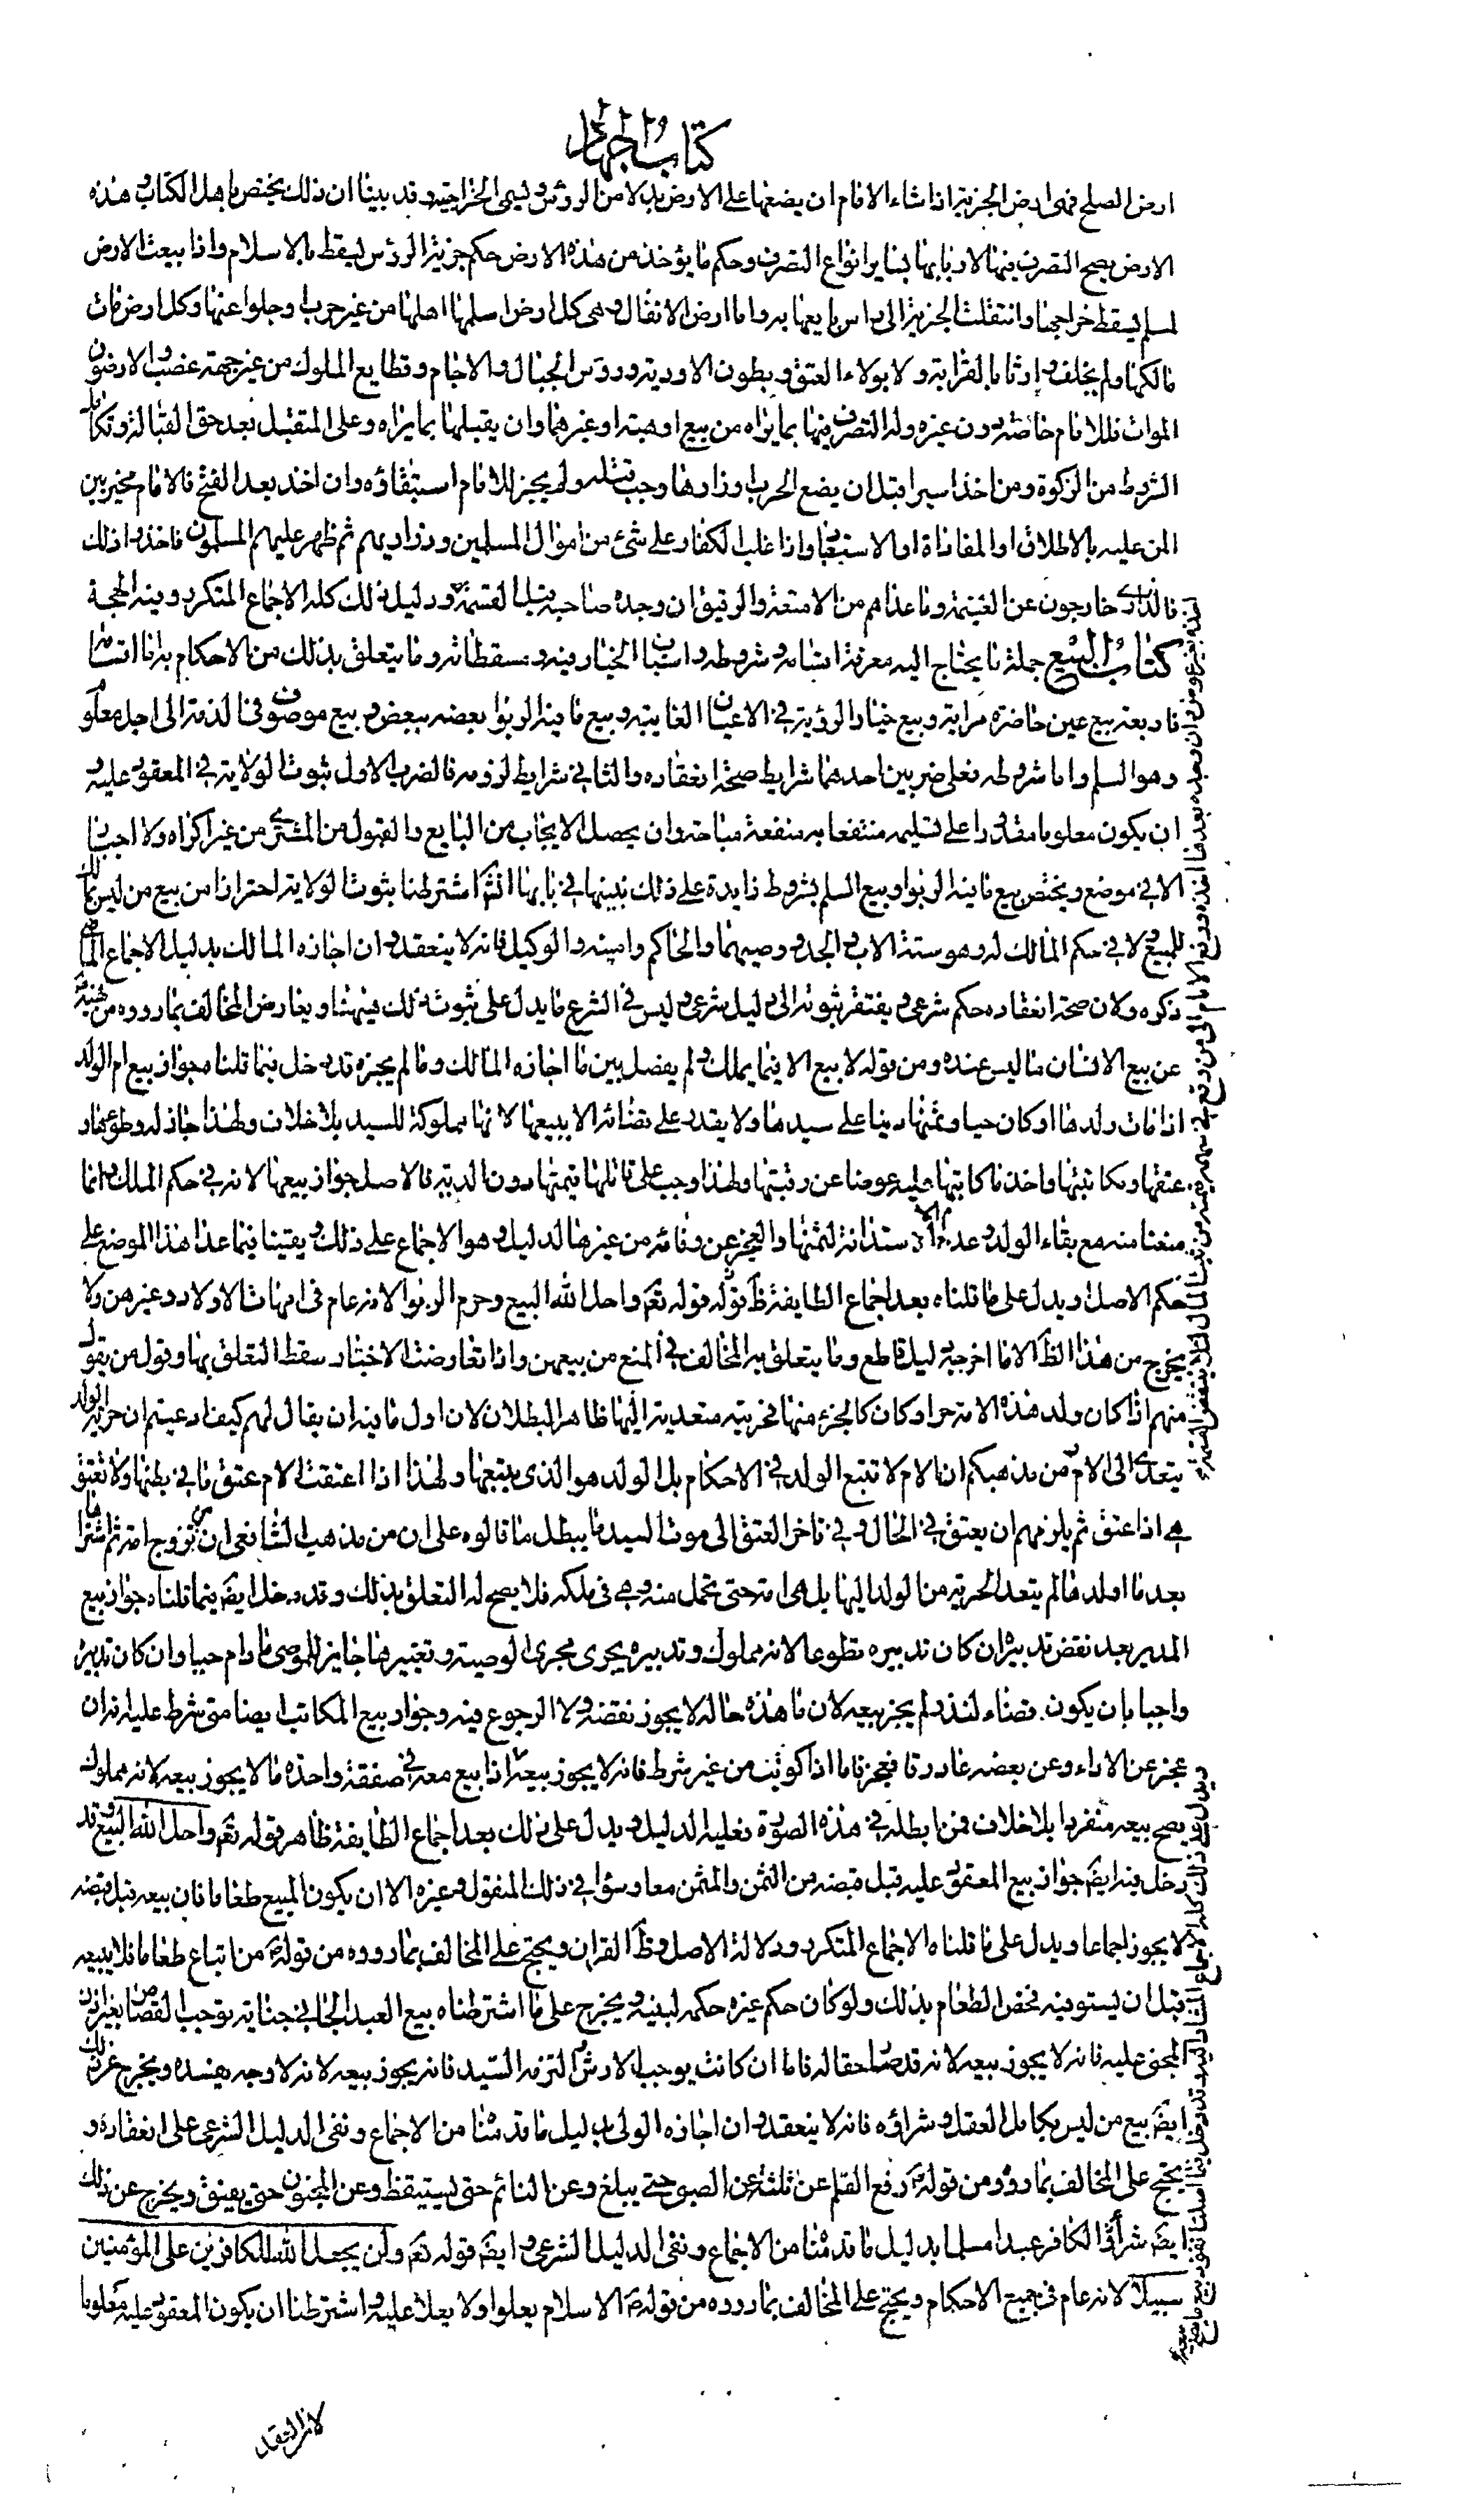 كتاب الجهاد
ارض الصلح فهى ارض الجزية اذا شاء الامام ان يضعها على الارض بدلا من الرؤس و ليسمى الخراجية و قد بينا ان ذلك يختص باهل الكتاب و هذه
الارض يصح التصرف فيها لاربابها بساير انواع التصرف وحكم ما يؤخذ من هذه الارض حكم جزية الرؤس ليسقط بالاسلام واذا بيعت الارض
لمسلم يسقط خراجها وانتقلت الجزية الى راس بايعها به واما ارض الانفال و هى كل ارض اسلمها اهلها من غير حرب او جلوا عنها وكل ارض مات
مالكها ولم يخلف وارثا بالقرابة و لا بولاء العتق و بطون الاودية و رؤس الجبال و الاجام و قطايع الملوك من غير جهة غصب و الارضون
الموات فللامام خاصة دون غيره وله التصرف فيها بما يراه من بيع او هبة او غيرهما وان يقبلها بما يراه وعلى المتقبل بعد حق القبالة و تكامل
الشروط من الزكوة ومن اخذ اسيرا قبل ان يضع الحرب اوزارها وجب قتله ولم يجز للامام استبقاؤه وان اخذ بعد الفتح فالامام مخير بين
المن عليه بالاطلاق او المفاداة او الاستعباد واذا غلب الكفار على شئ من اموال المسلمين و ذراريهم ثم ظهر عليهم المسلمون فاخذوا ذلك
فالذرارى خارجون عن الغنيمة وما عداهم من الامتعة والرقيق ان وجده صاحبه قبل القسمة و دليل ذلك كله الاجماع المتكرر وفيه الحجة
كتاب البيع جملة ما يحتاج اليه معرفة اقسامه و شروطه واسباب الخيار فيه و مسقطاته وما يتعلق بذلك من الاحكام به اما اقسامه
فاربعة بيع عين حاضرة مراية و بيع خيار الرؤية فى الاعيان الغايبة و بيع ما فيه الربوا بعضه ببعض و بيع موصوف فى الذمة الى اجل معلوم
وهو السلم واما شروطه فعلى ضربين احدهما شرايط صحة انعقاده والثانى شرايط لزومه فالضرب الاول ثبوت الولاية فى المعقود عليه و
ان يكون معلوما مقدورا على تسليمه منتفعا به منفعة مباحة وان يحصل الايجاب من البايع والقبول من المشترى من غير اكراه ولا اجبار
الا فى موضع ويختص بيع ما فيه الربوا و بيع السلم بشروط زايدة على ذلك نبينها فى بابها انشا اشترطنا ثبوت الولاية احترازا من بيع من ليس بمالك
للمبيع ولا فى حكم المالك له وهو ستة الاب و الجد و وصيهما والحاكم وامينه والوكيل فانه لا ينعقد و ان اجازه المالك بدليل الاجماع الماضى
ذكره ولان صحة انعقاده حكم شرعى و يفتقر ثبوته الى دليل شرعى و ليس فى الشرع ما يدل على ثبوت ذلك فيهنا و يعارض المخالف بما رووه من نهيه
عن بيع الانسان ما ليس عنده و من قوله لا بيع الا فيما يملك و لم يفصل بين ما اجازه المالك وما لم يجزه قد دخل فيما قلناه جواز بيع ام الولد
اذا مات ولدها او كان حيا و ثمنها دينا على سيدها ولا يقدر على قضائه الا ببيعها لانها مملوكة للسيد بلا خلاف ولهذا جاز له وطؤها و
عتقها ومكاتبتها واخذ ما كاتبها عليه عوضا عن رقبتها ولهذا وجب على قاتلها قيمتها دون الدية فالاصل جواز بيعها لانه فى حكم الملك و انما
منعنا منه مع بقاء الولد و عدم الاستدانة لثمنها و العجز عن وفائه من غيرها لدليل و هو الاجماع على ذلك و بقينا فيما عدا هذا الموضع على
حكم الاصل و يدل على ما قلناه بعد اجماع الطايفة ظ قوله تع واحل الله البيع وحرم الربوا لانه عام فى امهات الاولاد و غيرهن ولا
يخرج من هذا الظ الا ما اخرجه دليل قاطع وما يتعلق به المخالف فى المنع من بيعهن واذا تعارضت الاخبار سقط التعلق بها وقول من يقول
منهم اذا كان ولد هذه الامة حرا و كان كالجزء منها فحريته متعدية اليها ظاهر البطلان لان اول ما فيه ان يقال لهم كيف ادعيتم ان حرية الولد
يتعدى الى الام و من مذهبكم ان الام لا تتبع الولد فى الاحكام بل الولد هو الذى يتبعها ولهذا اذا اعتقت الام عتق ما فى بطنها ولا تعتق
هى اذا عتق ثم يلزمهم ان يعتق فى الحال و فى تاخر العتق الى موت السيد ما يبطل ما قالوه على ان من مذهب الشافعى ان من تزوج امة ثم اشتراها
بعد ما اولدها لم يتعد الحرية من الولد اليها بل هى امة حتى تحمل منه و هى فى ملكه فلا يصح له التعلق بذلك و قد دخل ايضا فيما قلناه جواز بيع
المدبر بعد نقض تدبيره ان كان تدبيره تطوعا لانه مملوك و تدبيره يجرى مجرى الوصية و تغييرها جايز للموصى مادام حيا وان كان تدبيره
واجبا بان يكون قضاء لنذر لم يجز بيعه لان ما هذه حاله لا يجوز نقضه و لا الرجوع فيه و جواز بيع المكاتب ايضا متى شرط عليه انه ان
عجز عن الاداء وعن بعضه عاد رقا فعجز فاما اذا كوتب من غير شرط فانه لا يجوز بيعه اذا بيع معه فى صفقة واحدة ما لا يجوز بيعه لانه مملوك
يصح بيعه منفردا بلا خلاف فمن ابطله فى هذه الصورة فعليه الدليل و يدل على ذلك بعد اجماع الطايفة ظاهر قوله تع واحل الله البيع و قد
دخل فيه ايضا جواز بيع المعقود عليه قبل قبضه من الثمن والمثمن معا و سواء فى ذلك المنقول و غيره الا ان يكون المبيع طعاما فان بيعه قبل قبضه
لا يجوز اجماعا و يدل على ما قلناه الاجماع المتكرر و دلالة الاصل و ظ القران و يحتج على المخالف بما رووه من قوله من ابتاع طعاما فلا يبيعه
قبل ان يستوفيه فخص الطعام بذلك ولو كان حكم غيره حكمه لبينه و يخرج على ما اشترطناه بيع العبد الجانى جناية توجب القصاص بغير اذن
المجنى عليه فانه لا يجوز بيعه لانه قد صار حقا له فاما ان كانت يوجب الارش و التزمه السيد فانه يجوز بيعه لانه لا وجه يفسده و يخرج عن ذلك
ايضا بيع من ليس بكامل العقل و شراؤه فانه لا ينعقد و ان اجازه الولى بدليل ما قدمنا من الاجماع و نفى الدليل الشرعى على انعقاده و
يحتج على المخالف بما رووه من قوله رفع القلم عن ثلثة عن الصبى حتى يبلغ وعن النائم حتى يستيقظ وعن المجنون حتى يفيق و يخرج عن ذلك
ايضا شراء الكافر عبدا مسلما بدليل ما قدمنا من الاجماع و نفى الدليل الشرعى و ايضا قوله تع ولن يجعل الله للكافرين على المؤمنين
سبيلا لانه عام فى جميع الاحكام و يحتج على المخالف بما رووه من قوله الاسلام يعلوا ولا يعلا عليه و اشترطنا ان يكون المعقود عليه معلوما